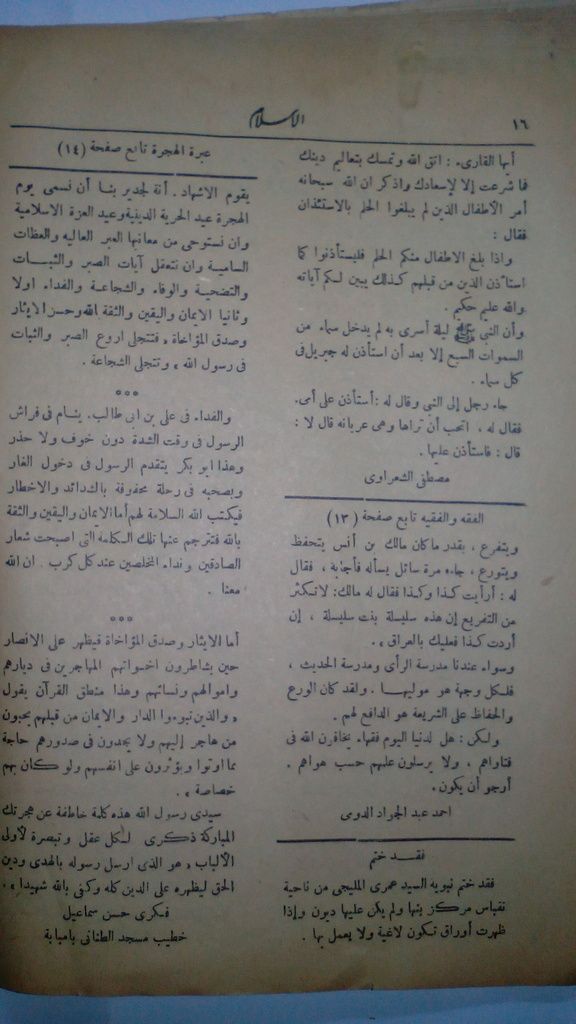 ١٦
الإسلام
أيها القارىء : اتق الله وتمسك بتعاليم دينك
فما شرعت إلا لإسعادك واذكر ان الله سبحانه
أمر الأطفال الذين لم يبلغوا الحلم بالاستئذان
فقال :
واذا بلغ الاطفال منكم الحلم فليستأذنوا كما
استأذن الذين من قبلهم كذلك يبين لكم آياته
والله عليم حكيم .
وأن النبي ﷺ ليلة أسرى به لم يدخل سماء من
السموات السبع إلا بعد أن استأذن له جبريل فى
كل سماء .
جاء رجل إلى النبي وقال له : أستأذن على أمى.
فقال له . اتحب أن تراها وهى عريانه قال لا :
قال : فاستأذن عليها .
مصطفى الشعراوى
الفقه والفقيه تابع صفحة (١٣)
ويتفرع ، بقدر ما كان مالك بن أنس يتحفظ
ويتورع ، جاءه مرة سائل يسأله فأجابه ، فقال
له : أرأيت كذا وكذا فقال له مالك: لا تكثر
من التفريع إن هذه سليسلة بنت سليسلة ، إن
أردت كذا فعليك بالعراق » .
وسواء عندنا مدرسة الرأى ومدرسة الحديث ،
فلكل وجهة هو موليها . ولقد كان الورع
والحفاظ على الشريعة هو الدافع لهم .
ولكن : هل لدنيا اليوم فقهاء يخافون الله فى
فتاواهم ، ولا يرسلون علمهم حسب هواهم .
أرجو أن يكون .
احمد عبد الجواد الدومى
فقد ختم
فقد ختم نبويه السيد عمرى المليجى من ناحية
نقباس مركز بنها ولم يكن عليها ديون وإذا
ظهرت أوراق تكون لاغية ولا يعمل بها .
عبرة الهجرة تابع صفحة (١٤)
يقوم الاشهاد . أنه لجدير بنا أن نسمى يوم
الهجرة عيد الحرية الدينية وعيد العزة الاسلامية
وان نستوحى من معانيها العبر العاليه والعظات
الساميه وان نتعقل آيات الصبر والثبات
والتضحية والوفاء والشجاعة والفداء اولا
وثانيا الايمان واليقين والثقة بالله وحسن الايثار
وصدق المؤاخاة ، فتتجلى اروع الصبر والثبات
فى رسول الله ، وتتجلى الشجاعة .
والفداء فى على بن ابى طالب. ينام فى فراش
الرسول فى وقت الشدة دون خوف ولا حذر
وهذا ابو بكر يتقدم الرسول فى دخول الغار
ويصحبه فى رحلة محفوفة بالشدائد والاخطار
فيكتب الله السلامة لهم أما الايمان واليقين والثقة
بالله فتترجم عنها تلك الكلمة التى اصبحت شعار
الصادقين ونداء المخلصين عند كل كرب . ان الله
معنا .
أما الايثار وصدق المؤاخاة فيظهر على الانصار
حين يشاطرون اخواتهم المهاجرين فى ديارهم
واموالهم ونسائهم وهذا منطق القرآن يقول
« والذين تبوءوا الدار والايمان من قبلهم يحبون
من هاجر إليهم ولا يجدون فى صدورهم حاجة
مما اوتوا ويؤثرون على انفسهم ولو كان بهم
خصاصة » .
سيدى رسول الله هذه كلمة خاطفة عن هجرتك
المباركة ذكرى لكل عقل وتبصرة لأولى
الألباب « هو الذى ارسل رسوله بالهدى ودين
الحق ليظهره على الدين كله وكفى بالله شهيدا » .
فكرى حسن سماعيل
خطيب مسجد الطنانى بامبابة